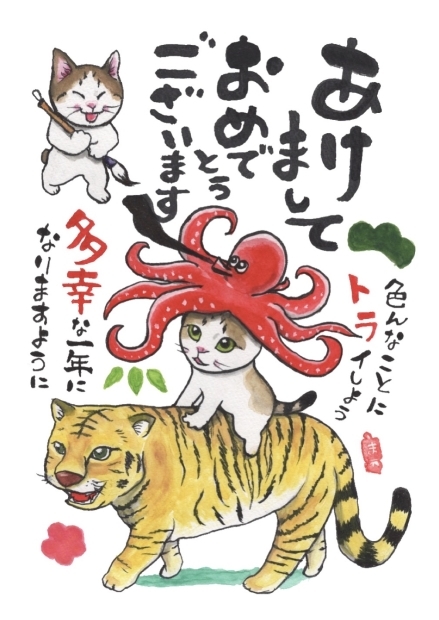 あけ
まして
おめで
とう
ございます
色んなことに
トライしよう
多幸な一年に
なりますように